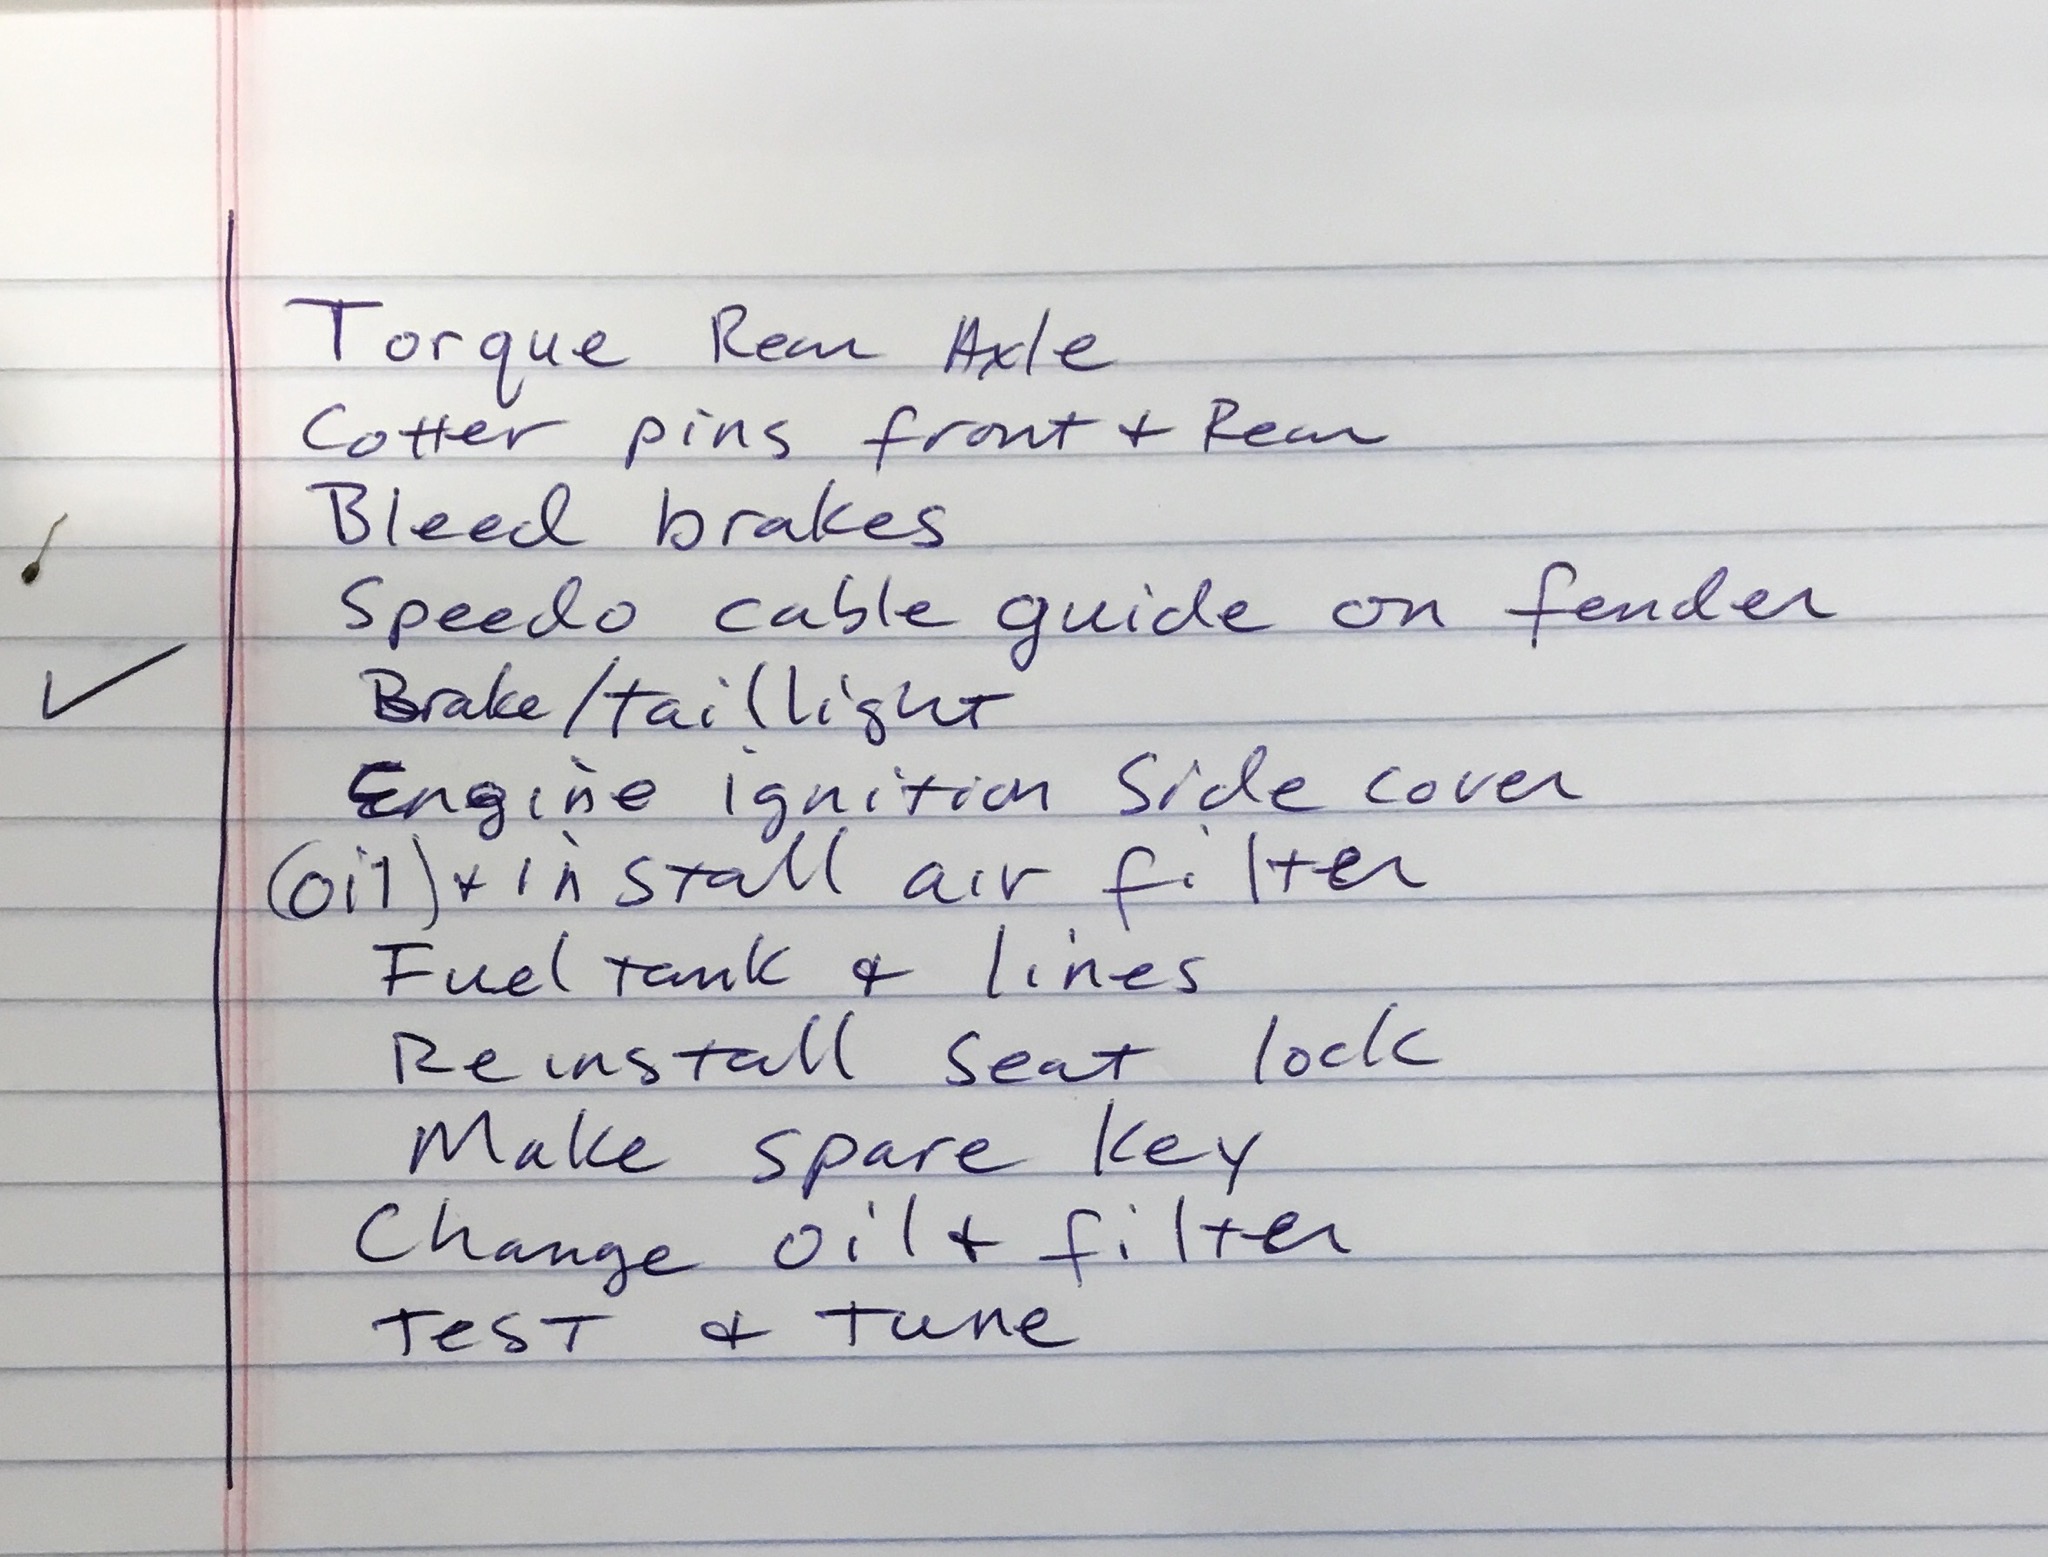 Torque Rear Axle
Cotter pins front & Rear
Bleed brakes
Speedo cable guide on fender
✓ Brake/taillight
Engine ignition Side cover
(oil) & install air filter
Fuel tank & lines
Reinstall seat lock
Make spare key
Change oil & filter
Test & tune